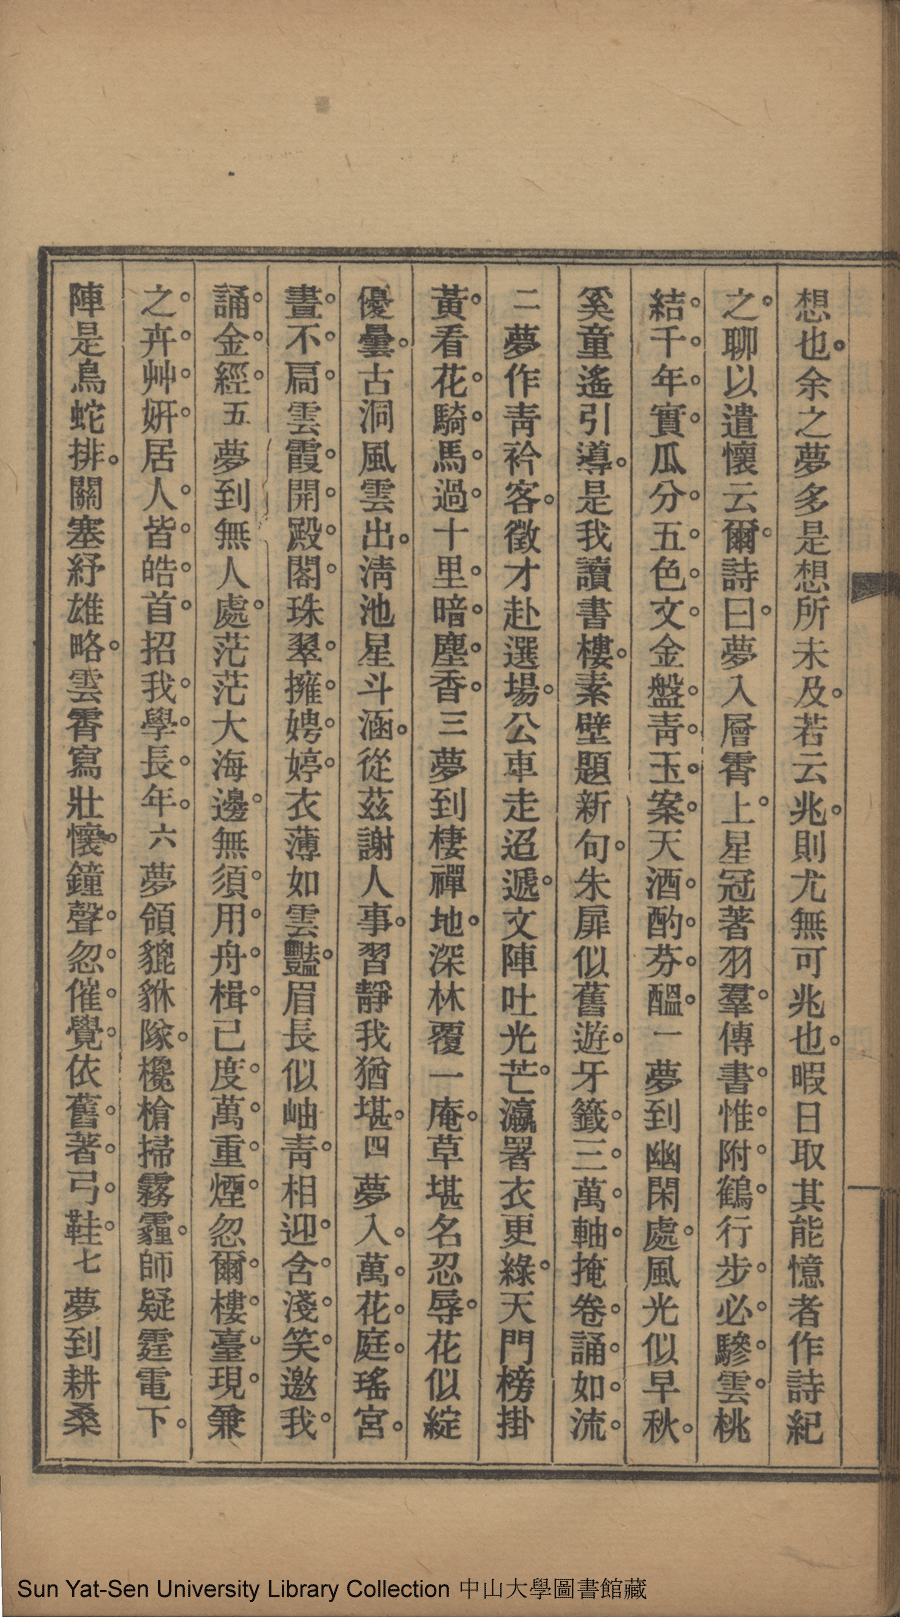 想也。余之夢多是想所未及。若云兆。則尤無可兆也。暇日取其能憶者作詩紀
之。聊以遣懷云爾。詩曰。夢入層霄上。星冠著羽羣。傳書惟附鶴。行步必驂雲。桃
結千年實。瓜分五色文。金盤青玉案。天酒酌芬醞。一夢到幽閑處。風光似早秋。
奚童遙引導。是我讀書樓。素壁題新句。朱扉似舊遊。牙籤三萬軸。掩卷誦如流。
二夢作青衿客。徵才赴選場。公車走迢遞。文陣吐光芒。瀛署衣更綠。天門榜掛
黃。看花騎馬過。十里暗塵香。三夢到棲禪地。深林覆一庵。草堪名忍辱。花似綻
優曇。古洞風雲出。淸池星斗涵。從茲謝人事。習靜我猶堪。四夢入萬花庭。瑤宮
晝不扃。雲霞開殿閣。珠翠擁娉婷。衣薄如雲豔。眉長似岫青。相迎含淺笑。邀我
誦金經。五夢到無人處。茫茫大海邊。無須用舟楫。已度萬重煙。忽爾樓臺現。兼
之卉艸妍。居人皆皓首。招我學長年。六夢領貔貅隊。欃槍掃霧霾。師疑霆電下。
陣是鳥蛇排。關塞紓雄略。雲霄寫壯懷。鐘聲忽催覺。依舊著弓鞋。七夢到耕桑
Sun Yat-Sen University Library Collection 中山大學圖書館藏